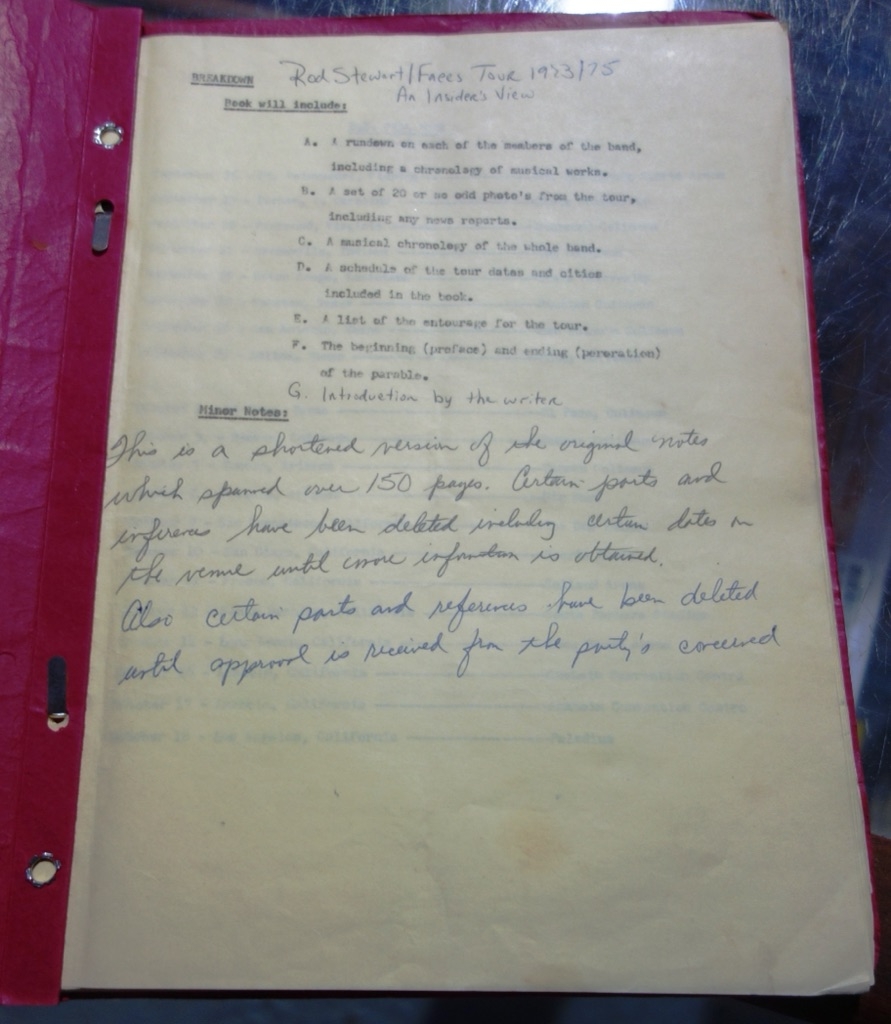 BREAKDOWN Rod Stewart/Faces Tour 1973/75
An Insider's View
Book will include:
A. A rundown on each of the members of the band,
including a chronology of musical works.
B. A set of 20 or so odd photo's from the tour,
including any news reports.
C. A musical chronology of the whole band.
D. A schedule of the tour dates and cities
included in the book.
E. A list of the entourage for the tour.
F. The beginning (preface) and ending (peroration)
of the parable.
G. Introduction by the writer
Minor Notes:
This is a shortened version of the original notes
which spanned over 150 pages. Certain parts and
inferences have been deleted including certain dates on
the venue until more information is obtained.
Also certain parts and references have been deleted
until approval is received from the party's concerned